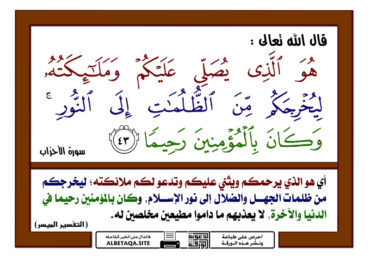 قال الله تعالى :
هُوَ ٱلَّذِى يُصَلِّى عَلَيْكُمْ وَمَلَـٰٓئِكَتُهُۥ
لِيُخْرِجَكُم مِّنَ ٱلظُّلُمَـٰتِ إِلَى ٱلنُّورِ ۚ
وَكَانَ بِٱلْمُؤْمِنِينَ رَحِيمًا ٤٣
سورة الأحزاب
أي هو الذي يرحمكم ويثني عليكم وتدعو لكم ملائكته؛ ليخرجكم
من ظلمات الجهل والضلال إلى نور الإسلام. وكان بالمؤمنين رحيما في
الدنيا والآخرة. لا يعذبهم ما داموا مطيعين مخلصين له.
(التفسير الميسر)
احرص على طباعة
ونشر هذه الورقة
ALBETAQA.SITE